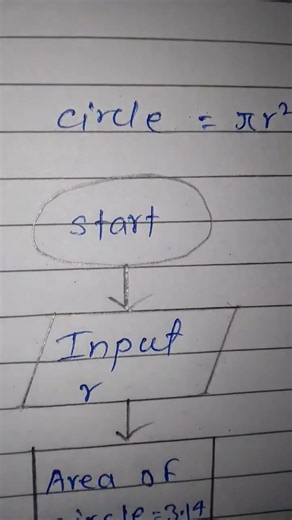 circle = πr²
start
Input
r
Area of
circle = 3.14